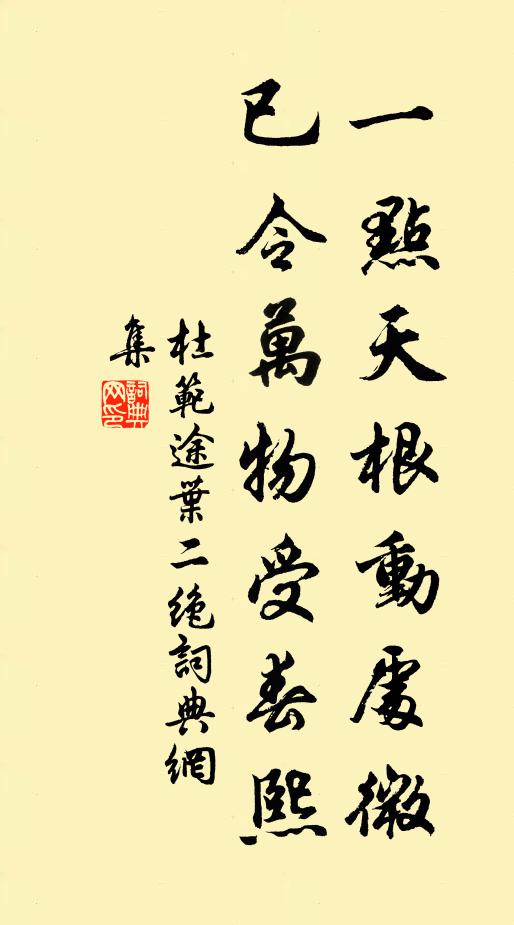 一點天根動處微
已令萬物受春熙
杜範途葉二絶詞典網
集
詞典
网印